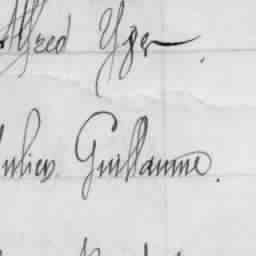 Alfred Yger.
Julien Guillaume.